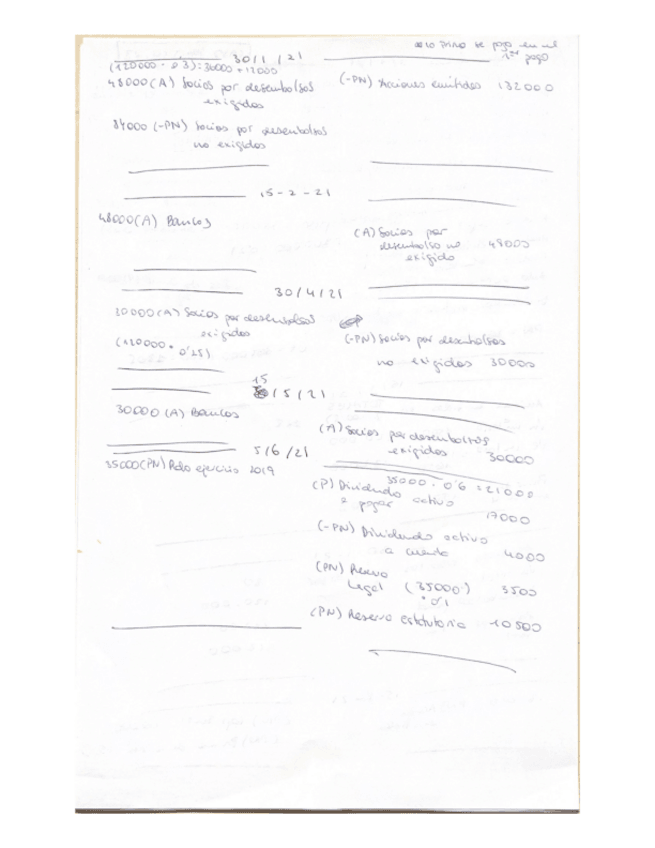 solo Prima se paga en el
1er pago
30/1/21
(120000 · 0'3) = 36000 + 12000
48000 (A) Socios por desembolsos
exigidos
(-PN) Acciones emitidas 132000
84000 (-PN) Socios por desembolsos
no exigidos
15-2-21
48000 (A) Bancos
(A) Socios por
desembolso no
exigido 48000
30/4/21
30000 (A) Socios por desembolsos
exigidos
(120000 · 0'25)
(-PN) Socios por desembolsos
no exigidos 30000
15
/5/21
30000 (A) Bancos
(A) Socios por desembolsos
exigidos 30000
5/6/21
35000 (PN) Rdo ejercicio 2019
35000 · 0'6 = 21000
(P) Dividendo activo
a pagar 17000
(-PN) Dividendo activo
a cuenta 4000
(PN) Reserva
Legal (35000·) 3500
· 0'1
(PN) Reserva estatutaria 10500